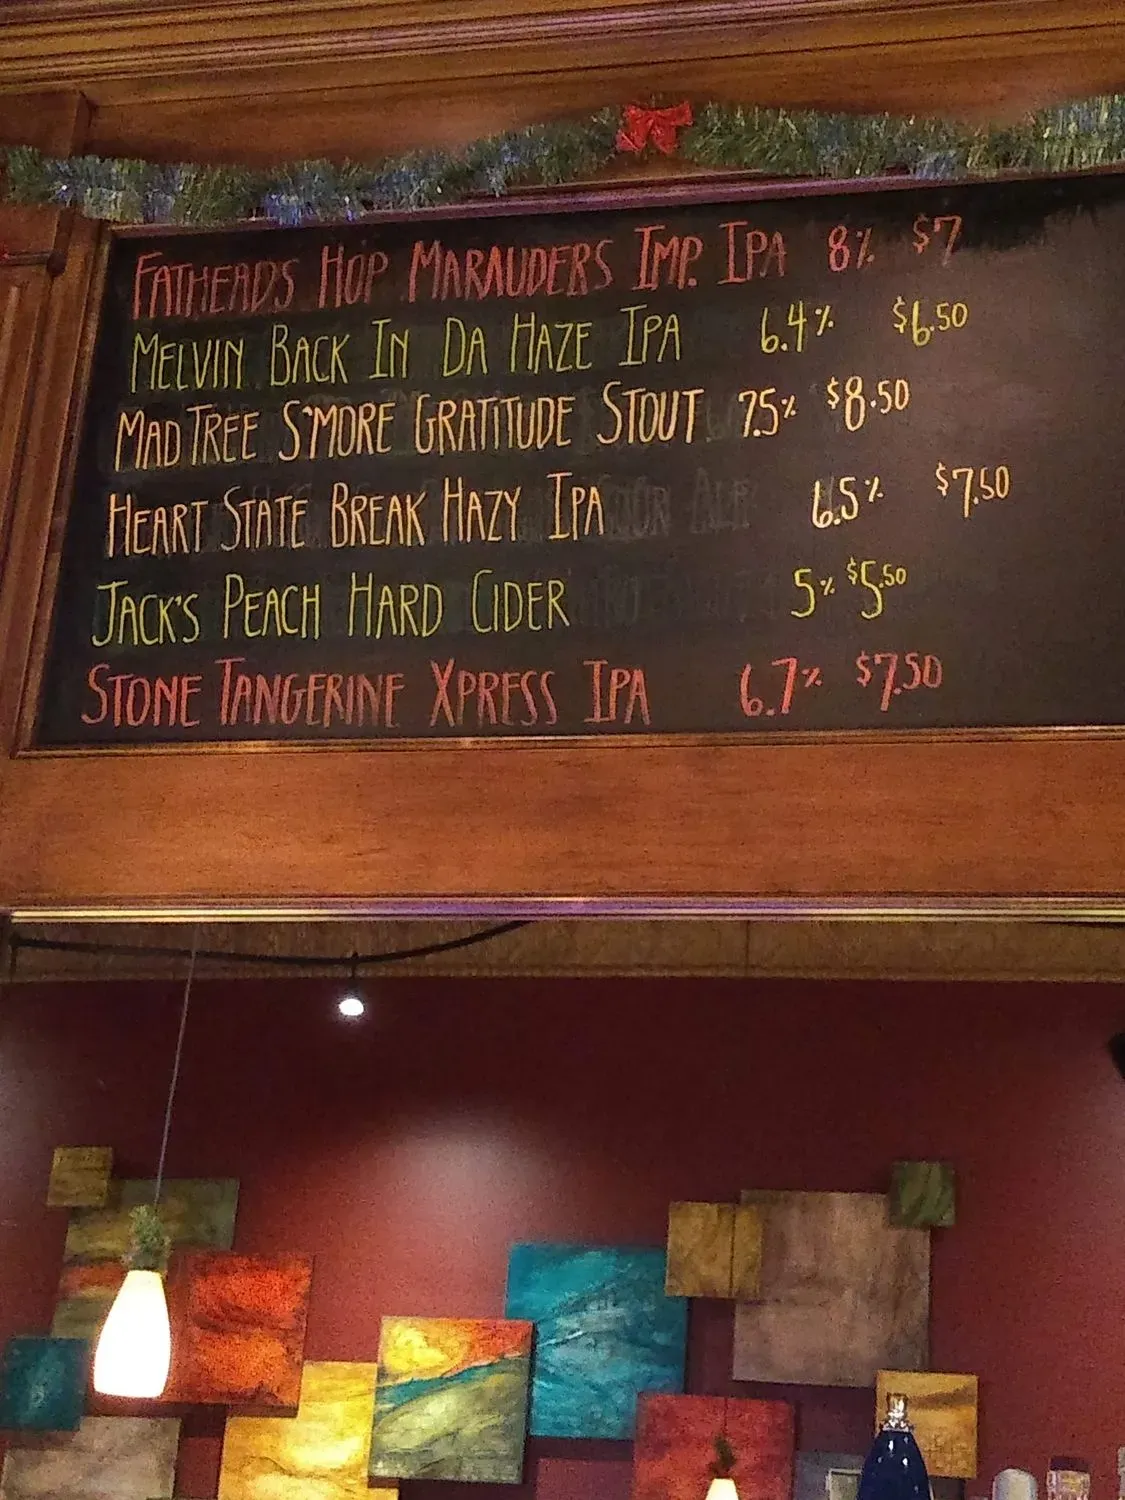 FATHEADS HOP MARAUDERS IMP. IPA 8% $7
MELVIN BACK IN DA HAZE IPA 6.4% $6.50
MADTREE S'MORE GRATITUDE STOUT 7.5% $8.50
HEART STATE BREAK HAZY IPA 6.5% $7.50
JACK'S PEACH HARD CIDER 5% $5.50
STONE TANGERINE XPRESS IPA 6.7% $7.50